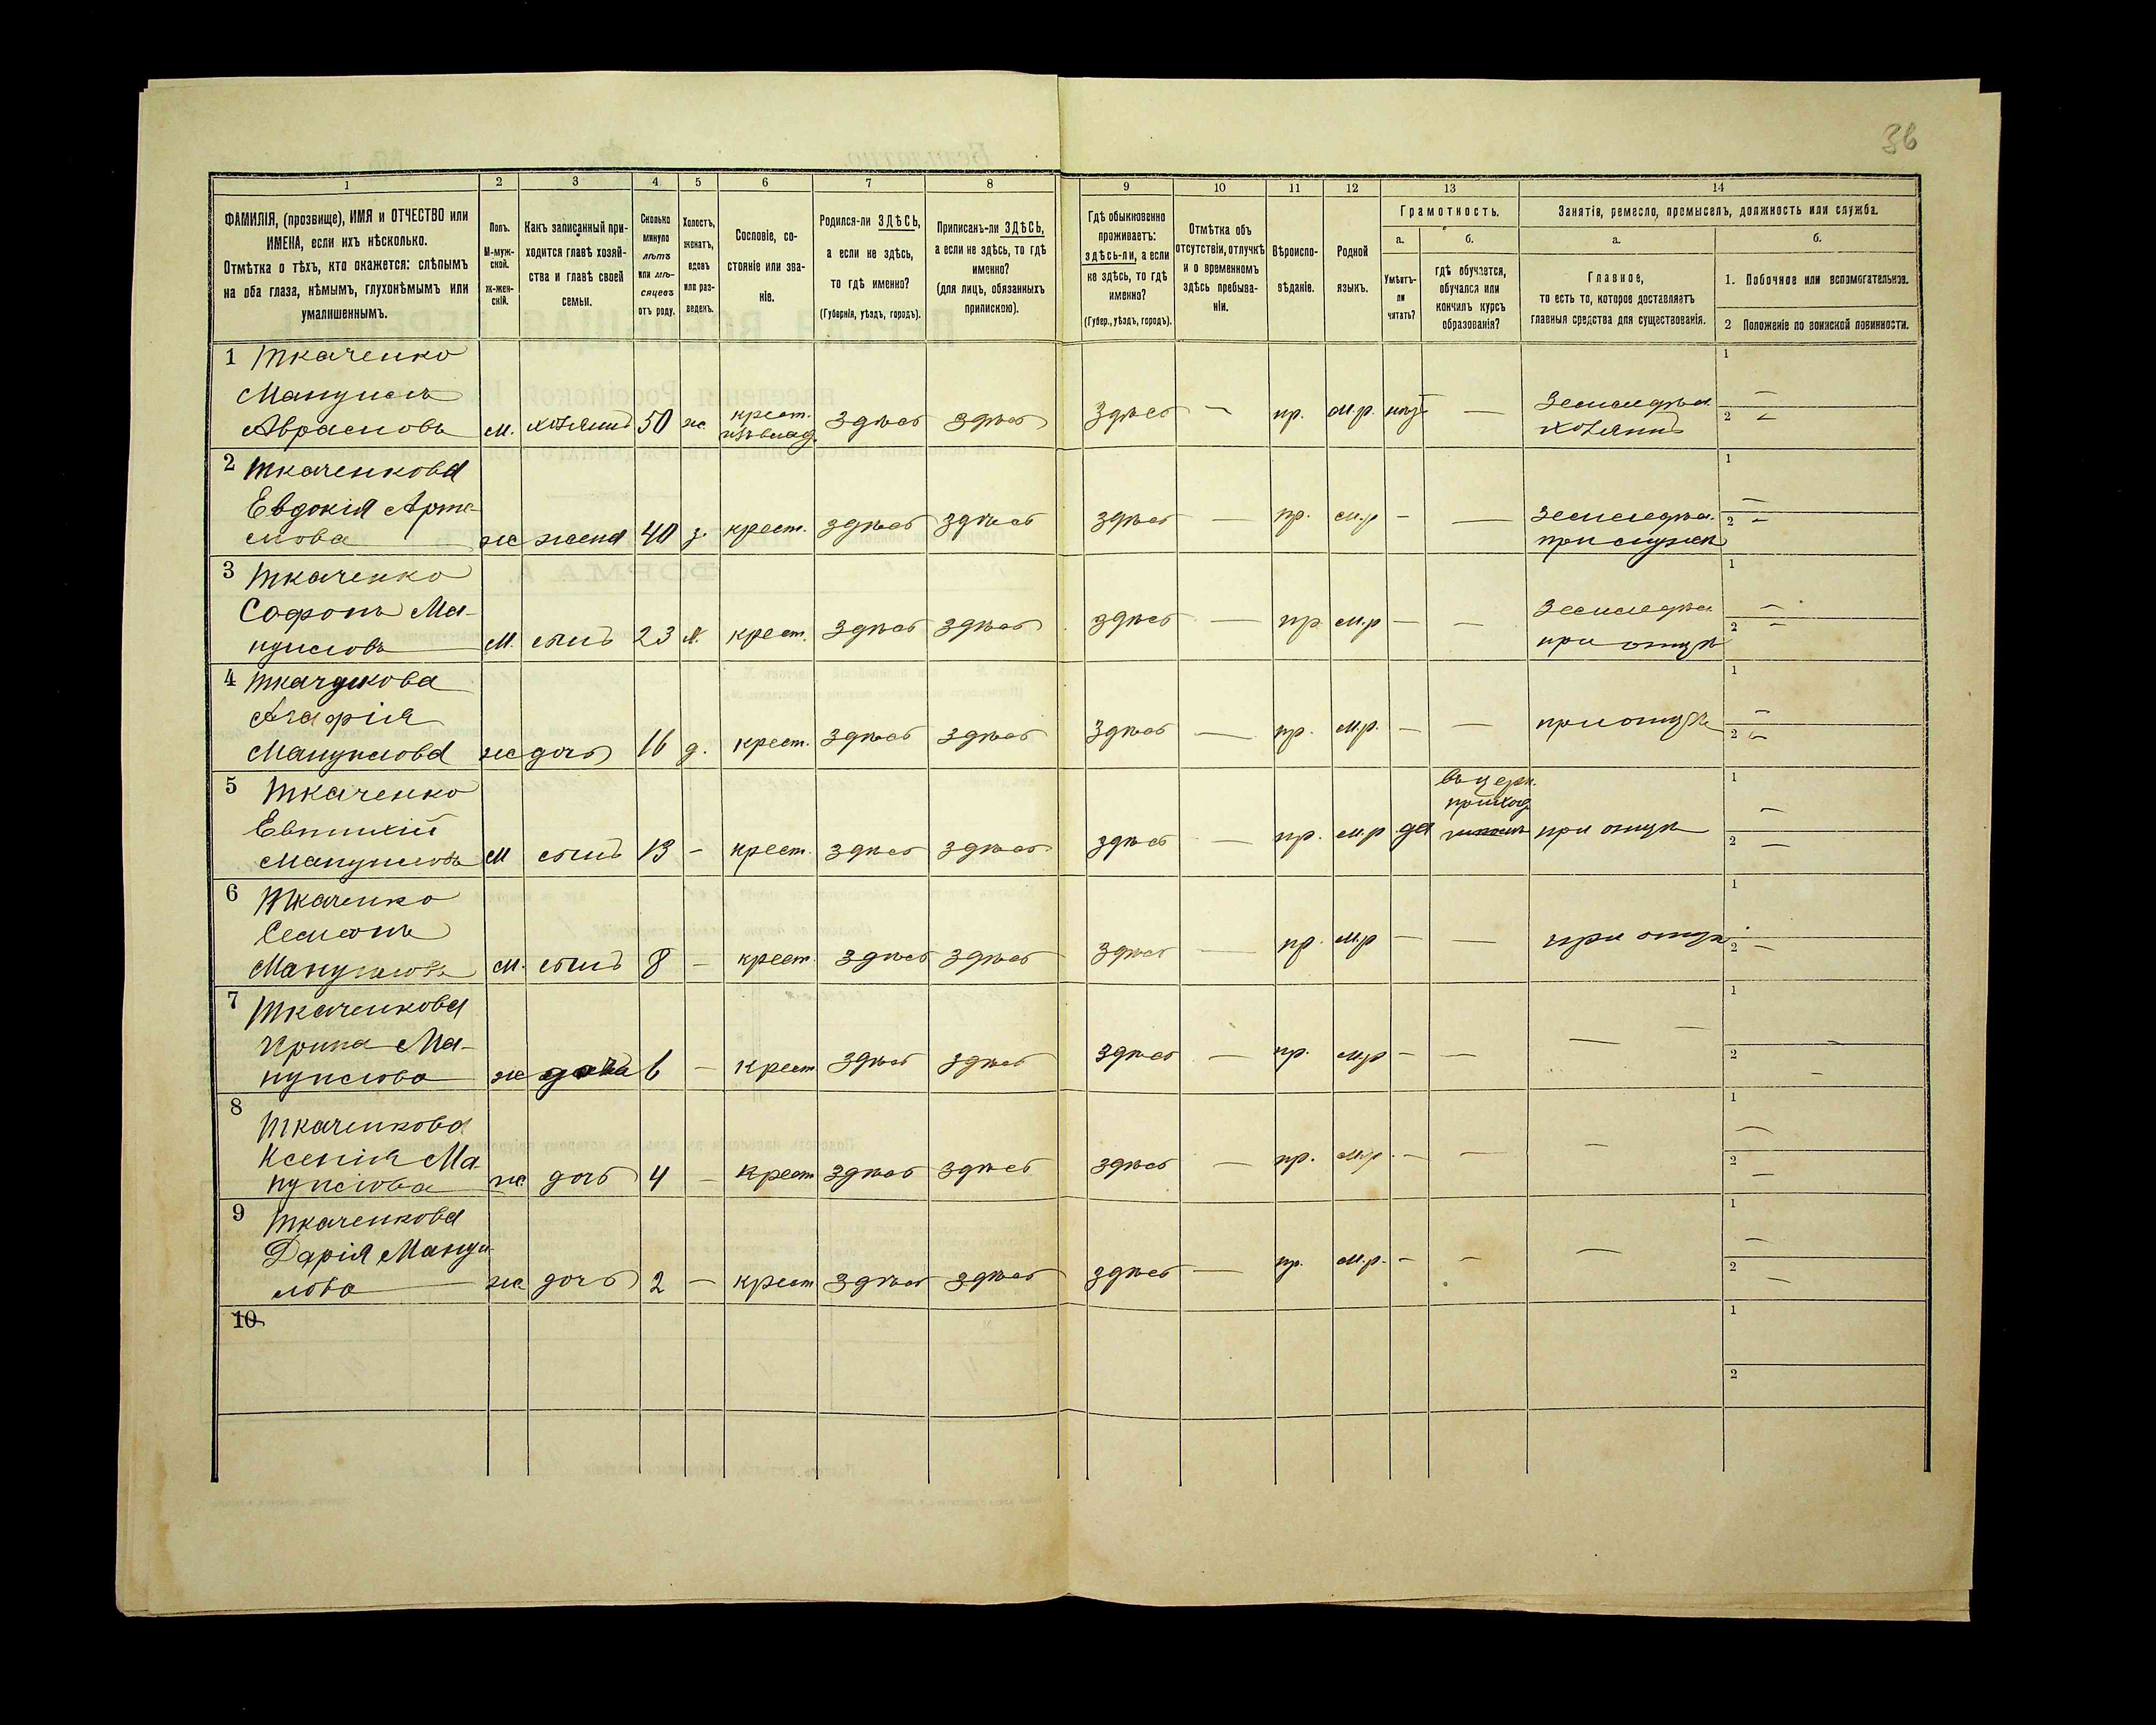 36
1 2 3 4 5 6 7 8 9 10 11 12 13 14
ФАМИЛІЯ, (прозвище), ИМЯ и ОТЧЕСТВО или
ИМЕНА, если ихъ нѣсколько.
Отмѣтка о тѣхъ, кто окажется: слѣпымъ
на оба глаза, нѣмымъ, глухонѣмымъ или
умалишеннымъ.
Полъ.
М-муж-
ской.
ж-жен-
скій.
Какъ записанный при-
ходится главѣ хозяй-
ства и главѣ своей
семьи.
Сколько
минуло
лѣтъ
или мѣ-
сяцевъ
отъ роду.
Холостъ,
женатъ,
вдовъ
или раз-
веденъ.
Сословіе, со-
стояніе или зва-
ніе.
Родился-ли ЗДѢСЬ,
а если не здѣсь,
то гдѣ именно?
(Губернія, уѣздъ, городъ).
Приписанъ-ли ЗДѢСЬ,
а если не здѣсь, то гдѣ
именно?
(для лицъ, обязанныхъ
припискою).
Гдѣ обыкновенно
проживаетъ:
здѣсь-ли, а если
не здѣсь, то гдѣ
именно?
(Губер., уѣздъ, городъ).
Отмѣтка объ
отсутствіи, отлучкѣ
и о временномъ
здѣсь пребыва-
ніи.
Вѣроиспо-
вѣданіе.
Родной
языкъ.
Грамотность.
а.
Умѣетъ-
ли
читать?
б.
гдѣ обучается,
обучался или
кончилъ курсъ
образованія?
Занятіе, ремесло, промыселъ, должность или служба.
а.
Главное,
то есть то, которое доставляетъ
главныя средства для существованія.
б.
1. Побочное или вспомогательное.
2 Положеніе по воинской повинности.
1 Ткаченко
Мануилъ
Аврамовъ м. хозяинъ 50 ж. крест. изъ влад. здѣсь здѣсь здѣсь — пр. м.р. нѣтъ — Земледѣл. хозяинъ 1 — 2 —
2 Ткаченкова
Евдокія Арте-
мова ж жена 40 з. крест. здѣсь здѣсь здѣсь — пр. м.р — — земледѣл. при мужѣ 1 — 2 —
3 Ткаченко
Софонъ Ма-
нуиловъ М. сынъ 23 х. крест. здѣсь здѣсь здѣсь — пр м.р — — Земледѣл. при отцѣ 1 — 2 —
4 Ткачукова
Агафія
Мануилова ж дочь 16 д. крест. здѣсь здѣсь здѣсь — пр. м.р. — — при отцѣ 1 — 2 —
5 Ткаченко
Евтихій
Мануиловъ М сынъ 13 — крест. здѣсь здѣсь здѣсь — пр. м.р да въ церк. приход. школѣ при отцѣ 1 — 2 —
6 Ткаченко
Семенъ
Мануиловъ м. сынъ 8 — крест. здѣсь здѣсь здѣсь — пр. м.р — — при отцѣ 1 2 —
7 Ткаченкова
Ирина Ма-
нуилова ж дочь 6 — крест здѣсь здѣсь здѣсь — пр. м.р — — — 1 — 2 —
8 Ткаченкова
Ксенія Ма-
нуилова ж. дочь 4 — крест здѣсь здѣсь здѣсь — пр. м.р. — — — 1 — 2 —
9 Ткаченкова
Дарія Мануи-
лова ж дочь 2 — крест здѣсь здѣсь здѣсь — пр. м.р. — — — 1 — 2 —
10 1 2